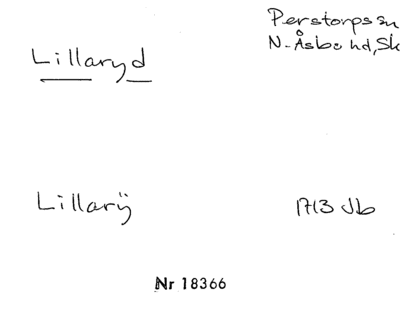 Perstorps sn
Lillaryd
N. Åsbo hd, Sk
Lillarÿ
1713 Jb
Nr 18366